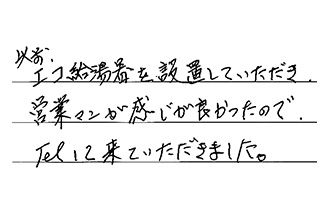 以前、
エコ給湯器を設置していただき、
営業マンが感じが良かったので、
Telして来ていただきました。